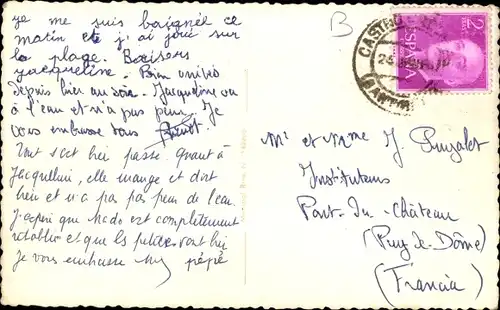 je me suis baignée ce
matin et j'ai joué sur
la plage. Baisers
Jacqueline - Bien
depuis hier au soir. Jacqueline va
à l'eau et n'a pas peur. Je
vous embrasse tous
Tout s'est bien passé. Quant à
Jacqueline, elle mange et dort
bien et n'a pas peur de l'eau.
J'espère que Mado est complètement
rétablie et que les petits vont bien
Je vous embrasse pépé
B
CASTRO
2
ESPAÑA
Mr et Mme J.
Instituteurs
Pont-du-Château
(Puy-de-Dôme)
(Francia)